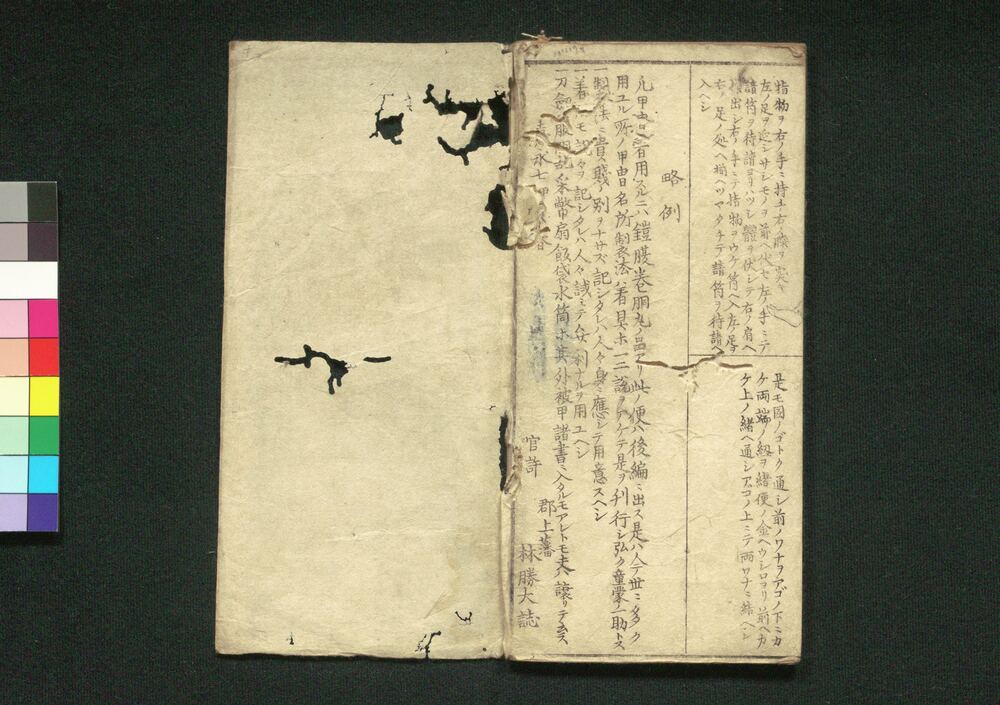 指物ヲ右ノ手ニ持チ右ノ膝ヲ突キ
左ノ足ヲ サシモノヲ前ヘ代セ左ノ手ニテ
請筒ヲ待請ヨリハツシ體ヲ伏シテ右ノ肩ヘ
出シ右ノ手ニテ指物ヲウケ筒ヘ入左ノ足ヲ
右ノ足ノ処ヘ揃ヘツヤタチテ請筒ヲ待請ヘ
入ヘシ
是モ図ノゴトク通シ前ノワナヲアゴノ下ニカ
ケ両端ノ紐ヲ緒便ノ金ヘウシロヨリ前ヘカ
ケ上ノ緒ヘ通シアゴノ上ニテ両ワナニ結ヘシ
略例
凡甲冑 着用スルニハ鎧腹巻胴丸ノ品アリ此ノ便ハ後編ニ出ス是ハ今世ニ多ク
用ユル所ノ甲冑名所製法着具ホ一二説ヲアケテ是ヲ刊行シ弘ク童蒙ノ一助トス
一製法ニ貴賤ノ別ヲナサズ記シタレハ人々身ニ應シテ用意スヘシ
一着 モ記 ヲ記シタレハ人々試ミテ 利ナルヲ用ユヘシ
一刀劔服 采幣扇飯袋水筒ホ其外被甲諸書ニ入タルモアレトモ夫ハ譲リテ ス
永七
官許
郡上藩
林勝大誌